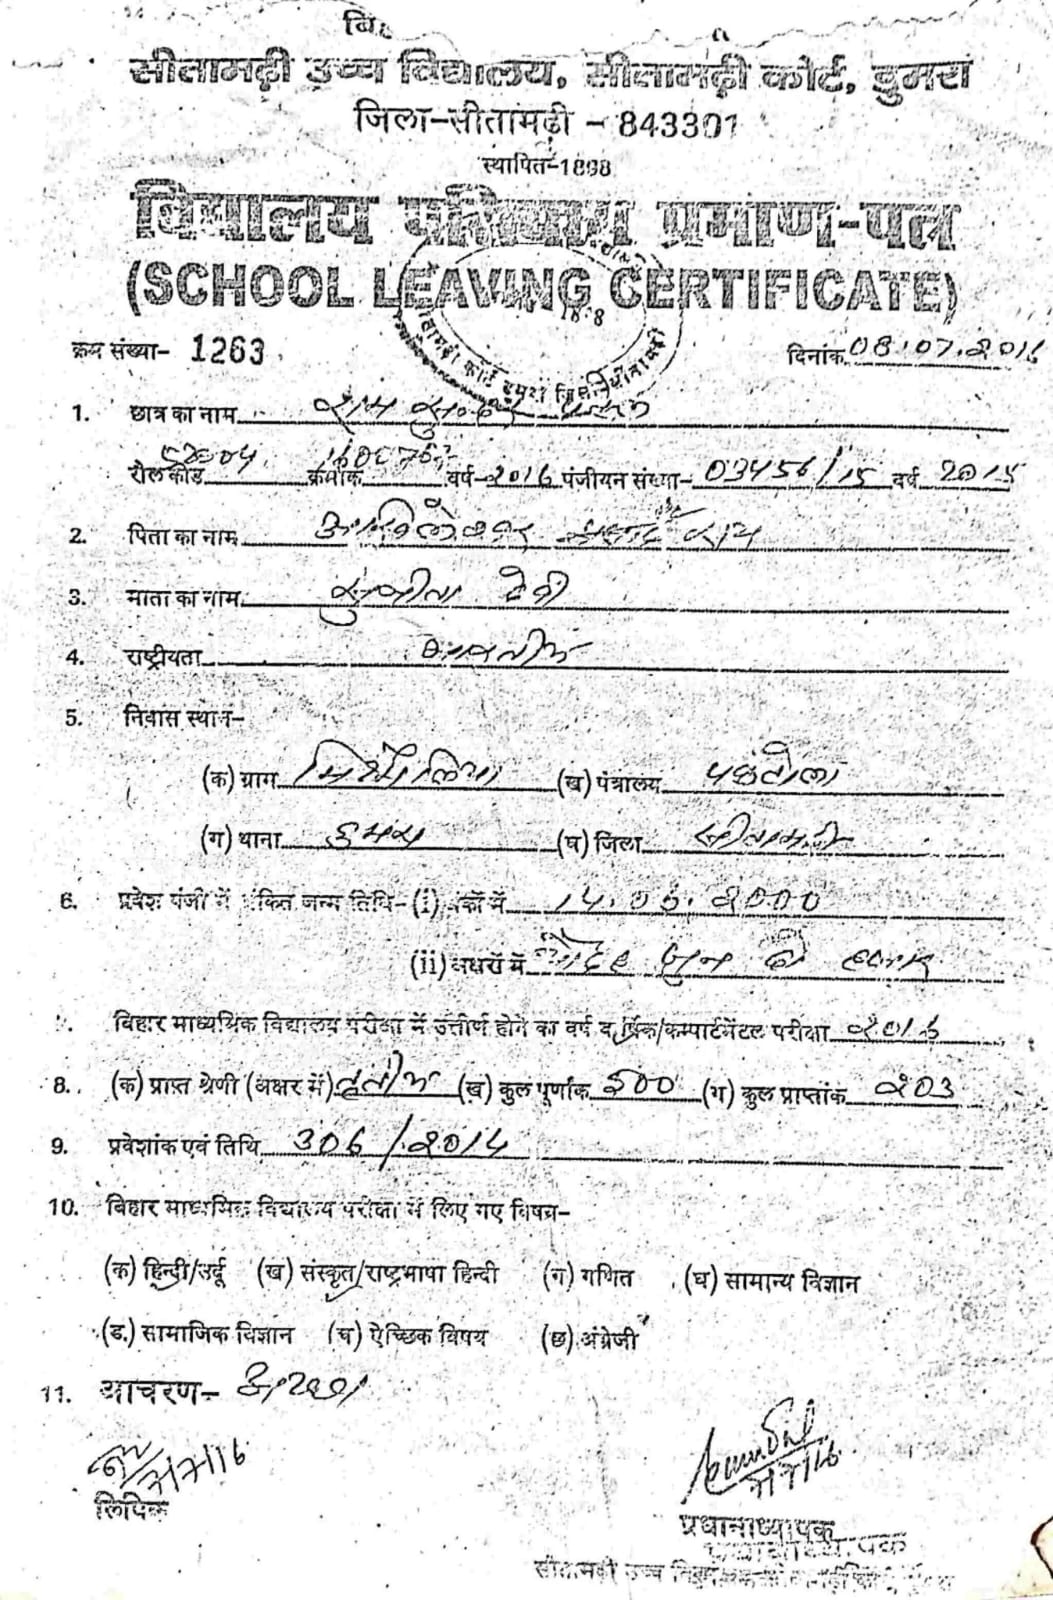 सीतामढ़ी उच्च विद्यालय, सीतामढ़ी कोर्ट, डुमरा
जिला-सीतामढ़ी - 843301
स्थापित-1898
विद्यालय परित्याग प्रमाण-पत्र
(SCHOOL LEAVING CERTIFICATE)
क्रम संख्या- 1263 दिनांक 08.07.2016
1. छात्र का नाम राम सुन्दर
रौल कोड क्रमांक वर्ष-2016 पंजीयन संख्या- 03456/15 वर्ष 2015
2. पिता का नाम प्रसाद राय
3. माता का नाम देवी
4. राष्ट्रीयता भारतीय
5. निवास स्थान-
(क) ग्राम (ख) पंत्रालय
(ग) थाना डुमरा (घ) जिला सीतामढ़ी
6. प्रवेश पंजी में अंकित जन्म तिथि- (i) अंकों में 14.06.2000
(ii) अक्षरों में चौदह जून दो हजार
बिहार माध्यमिक विद्यालय परीक्षा में उत्तीर्ण होने का वर्ष वार्षिक/कम्पार्टमेंटल परीक्षा 2016
8. (क) प्राप्त श्रेणी (अक्षर में) तृतीय (ख) कुल पूर्णांक 500 (ग) कुल प्राप्तांक 203
9. प्रवेशांक एवं तिथि 306/2014
10. बिहार माध्यमिक विद्यालय परीक्षा में लिए गए विषय-
(क) हिन्दी/उर्दू (ख) संस्कृत/राष्ट्रभाषा हिन्दी (ग) गणित (घ) सामान्य विज्ञान
(ड.) सामाजिक विज्ञान (च) ऐच्छिक विषय (छ) अंग्रेजी
11. आचरण- अच्छा
लिपिक
प्रधानाध्यापक
प्रधानाध्यापक
सीतामढ़ी उच्च